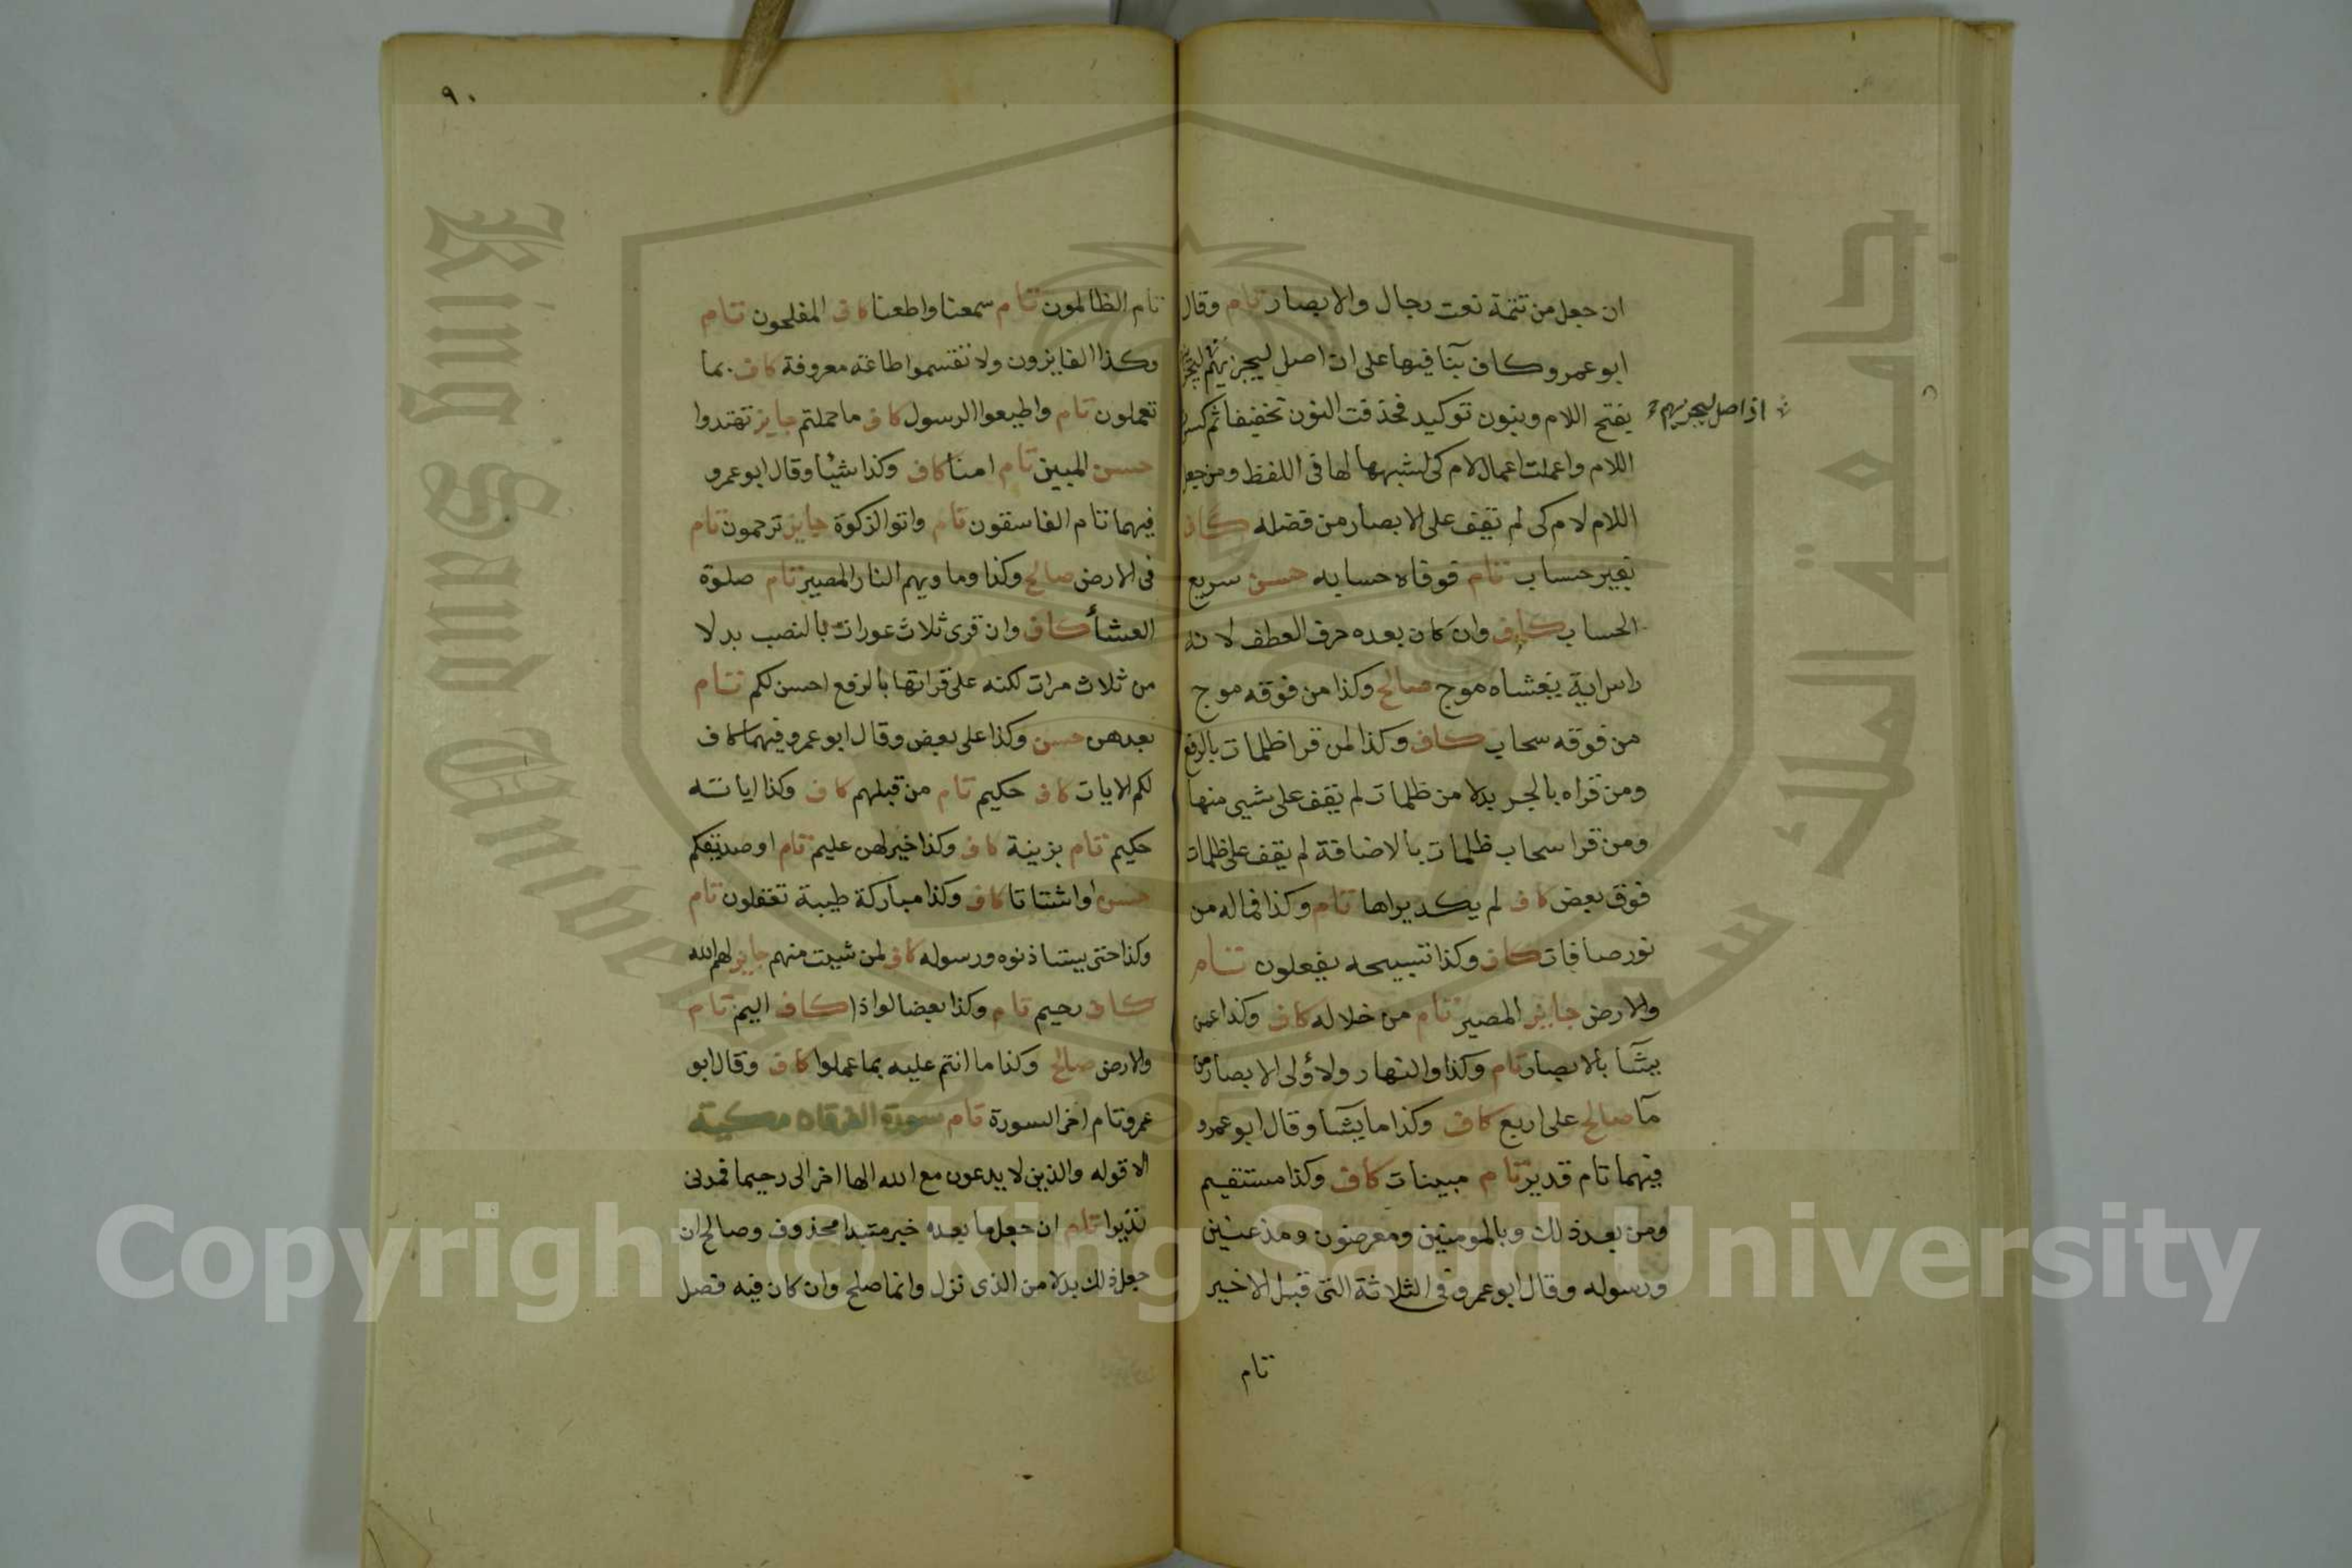 ان جعل من تتمة نعت رجال والابصار تام وقال
ابو عمرو كاف بنا فيها على ان اصل ليجزيهم ليجزينهم
اذ اصل ليجزيهم
بفتح اللام وبنون توكيد فحذفت النون تخفيفا ثم كسرت
اللام واعملت اعمال لام كى لشبهها لها فى اللفظ ومن جعل
اللام لام كى لم تقف على الابصار من فضله كاف
بغير حساب تام فوفاه حسابه حسن سريع
الحساب كاف وان كان بعده حرف العطف لانه
راس اية يغشاه موج صالح وكذا من فوقه موج
من فوقه سحاب كاف وكذا لمن قرا ظلمات بالرفع
ومن قراه بالجر بدلا من ظلمات لم يقف على شيى منها
ومن قرا سحاب ظلمات بالاضافة لم يقف على ظلمات
فوق بعض كاف لم يكد يراها تام وكذا فما له من
نور صافات كاف وكذا تسبيحه يفعلون تام
والارض جايز المصير تام من خلاله كاف وكذا عن من
يشآ بالابصار تام وكذا والنهار ولاولى الابصار من
مآ صالح على اربع كاف وكذا ما يشآ وقال ابو عمرو
فيهما تام قدير تام مبينات كاف وكذا مستقيم
ومن بعد ذلك وبالمومنين ومعرضون ومذعنين
ورسوله وقال ابو عمرو فى الثلاثة التى قبل الاخير
تام
٩٠
تام الظالمون تام سمعنا واطعنا كاف المفلحون تام
وكذا الفايزون ولا تقسموا طاعة معروفة كاف بما
تعملون تام واطيعوا الرسول كاف ما حملتم جايز تهتدوا
حسن المبين تام امنا كاف وكذا شيئا وقال ابو عمرو
فيهما تام الفاسقون تام واتوا الزكوة جايز ترحمون تام
فى الارض صالح وكذا وماويهم النار المصير تام صلوة
العشأ كاف وان قرى ثلاث عورات بالنصب بدلا
من ثلاث مرات لكنه على قراتها بالرفع احسن لكم تام
بعدهن حسن وكذا على بعض وقال ابو عمرو فيهما كاف
لكم الايات كاف حكيم تام من قبلهم كاف وكذا اياته
حكيم تام بزينة كاف وكذا خير لهن عليم تام او صديقكم
حسن او اشتاتا كاف وكذا مباركة طيبة تعقلون تام
وكذا حتى يستاذنوه ورسوله كاف لمن شيت منهم جايز لهم الله
كاف رحيم تام وكذا بعضا لواذا كاف اليم تام
والارض صالح وكذا ما انتم عليه بما عملوا كاف وقال ابو
عمرو تام اخر السورة تام سورة الفرقان مكية
الا قوله والذين لا يدعون مع الله الها اخر الى رحيما فمدنى
نذيرا تام ان جعل ما بعده خبر مبتدا محذوف وصالح ان
جعل ذلك بدلا من الذى نزل وانما صلح وان كان فيه فصل
جامعة الملك سعود
King Saud University
Copyright © King Saud University